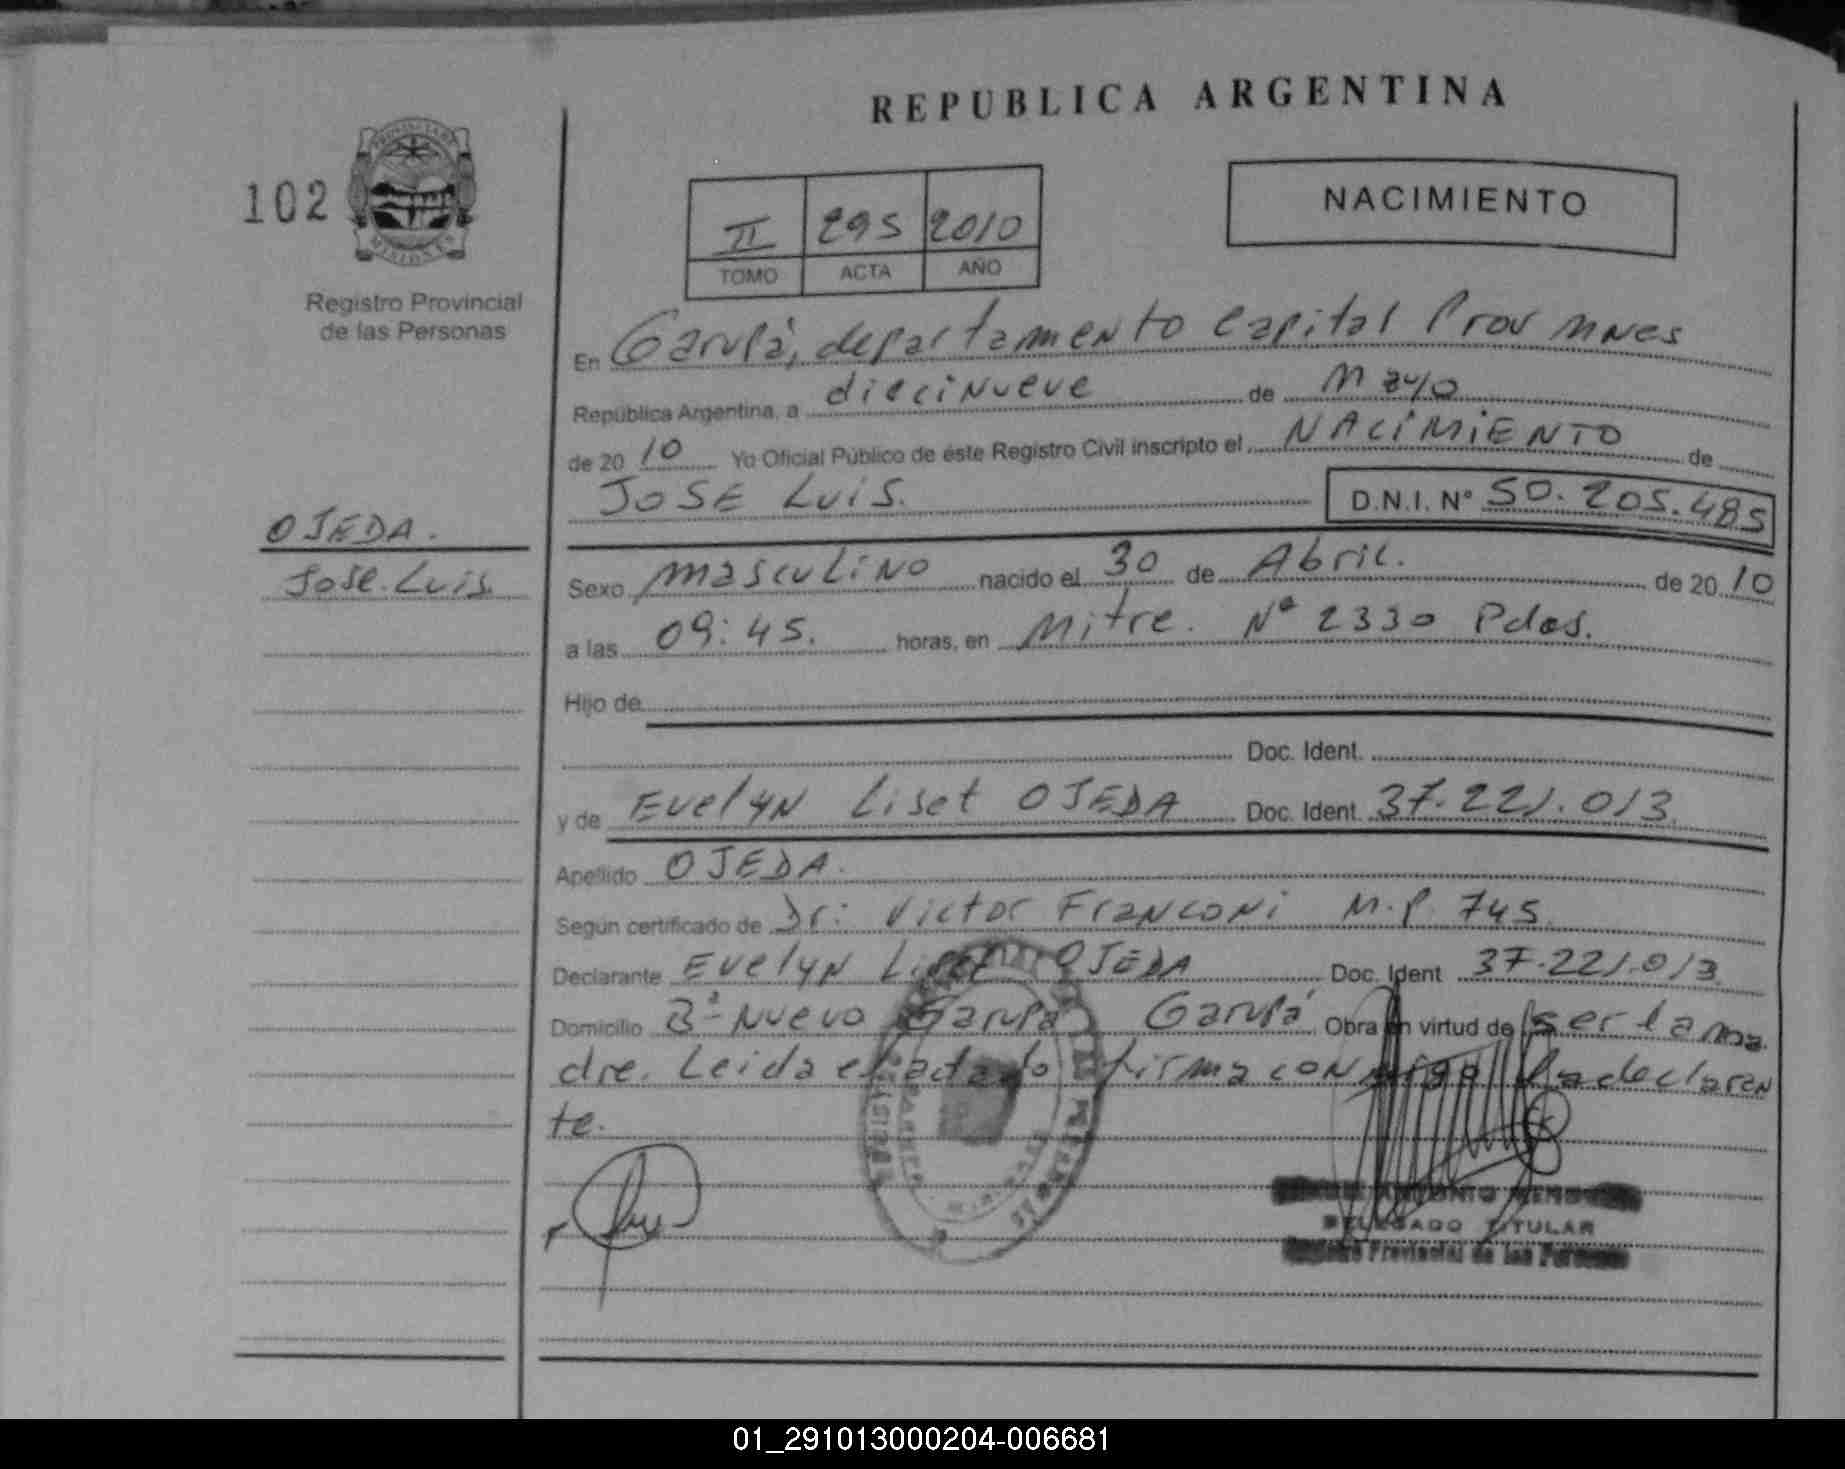 REPUBLICA ARGENTINA
102
PROVINCIA DE
MISIONES
Registro Provincial
de las Personas
II 295 2010
TOMO ACTA AÑO
NACIMIENTO
En Garupá, departamento Capital Prov Mnes
República Argentina, a diecinueve de Mayo
de 20 10 Yo Oficial Público de éste Registro Civil inscripto el NACIMIENTO de
JOSE LUIS. D.N.I. N° 50.205.485
OJEDA.
Jose Luis.
Sexo masculino nacido el 30 de Abril. de 20 10
a las 09:45. horas, en Mitre. Nº 2330 Pdas.
Hijo de
Doc. Ident.
y de Evelyn Liset OJEDA Doc. Ident. 37.221.013.
Apellido OJEDA.
Según certificado de Dr: Victor Franconi M.P. 745.
Declarante Evelyn Liset OJEDA Doc. Ident 37.221.013
Domicilio Bº Nuevo Garupá Garupá Obra en virtud de ser la ma
dre. Leida el acta lo firma conmigo la declaran
te.
DELEGADO TITULAR
Provincial de las Personas
01_291013000204-006681